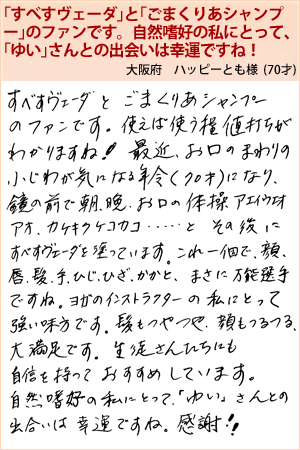 「すべすヴェーダ」と「ごまくりあシャンプ
ー」のファンです。自然嗜好の私にとって、
「ゆい」さんとの出会いは幸運ですね!
大阪府 ハッピーとも様 (70才)
すべすヴェーダ と ごまくりあシャンプー
のファンです。使えば使う程 値打ちが
わかりますね! 最近、お口のまわりの
小じわが気になる年令(70才)になり、
鏡の前で朝、晩、お口の体操 アエイウエオ
アオ、カケキクケコカコ……と その後に
すべすヴェーダを塗っています。これ一個で、顔、
唇、髪、手、ひじ、ひざ、かかと、まさに万能選手
ですね。ヨガのインストラクターの私にとって
強い味方です。髪もつやつや、顔もつるつる、
大満足です。生徒さんたちにも
自信を持っておすすめしています。
自然嗜好の私にとって、「ゆい」さんとの
出合いは幸運ですね。感謝!!